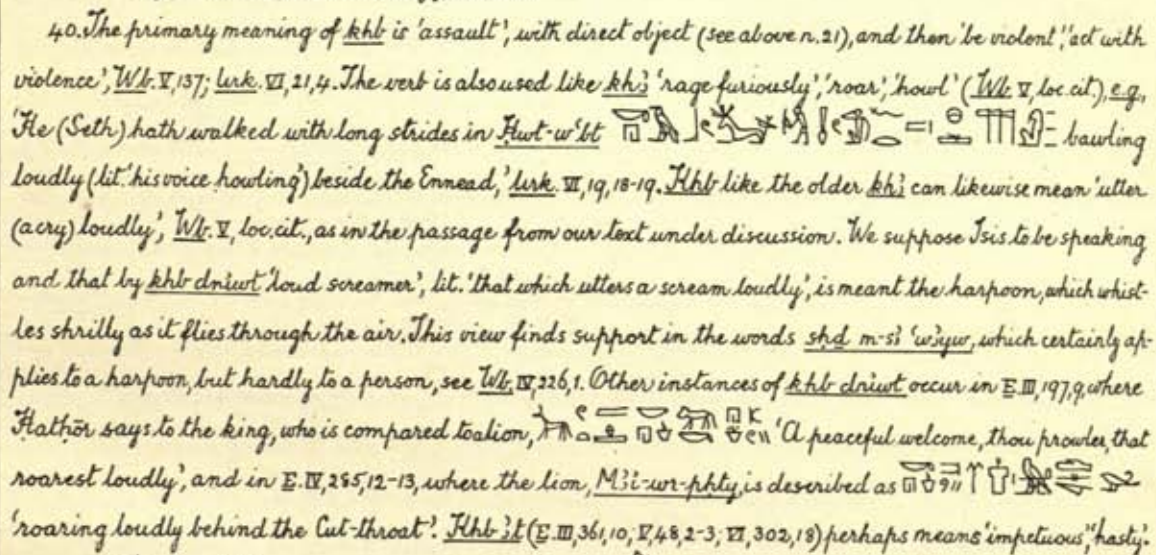 40. The primary meaning of khb is 'assault', with direct object (see above n.21), and then 'be violent', 'act with
violence', Wb. V, 137; Urk. VI, 21, 4. The verb is also used like khꜣ 'rage furiously', 'roar', 'howl' (Wb. V, loc. cit.), e.g.,
'He (Seth) hath walked with long strides in Ḥwt-wꜥbt bawling
loudly (lit. 'his voice howling') beside the Ennead,' Urk. VI, 19, 18-19. Khb like the older khꜣ can likewise mean 'utter
(a cry) loudly', Wb. V, loc. cit., as in the passage from our text under discussion. We suppose Isis to be speaking
and that by khb dniwt 'loud screamer', lit. 'that which utters a scream loudly', is meant the harpoon, which whist-
les shrilly as it flies through the air. This view finds support in the words sḫd m-sꜣ ꜥwꜣyw, which certainly ap-
plies to a harpoon, but hardly to a person, see Wb. IV, 226, 1. Other instances of khb dniwt occur in E. III, 197, 9, where
Hathōr says to the king, who is compared to a lion, 'A peaceful welcome, thou prowler, that
roarest loudly', and in E. IV, 285, 12-13, where the lion, Mꜣi-wr-pḥty, is described as
'roaring loudly behind the Cut-throat'. Khb ꜣt (E. III, 361, 10; V, 48, 2-3; VI, 302, 18) perhaps means 'impetuous', 'hasty'.